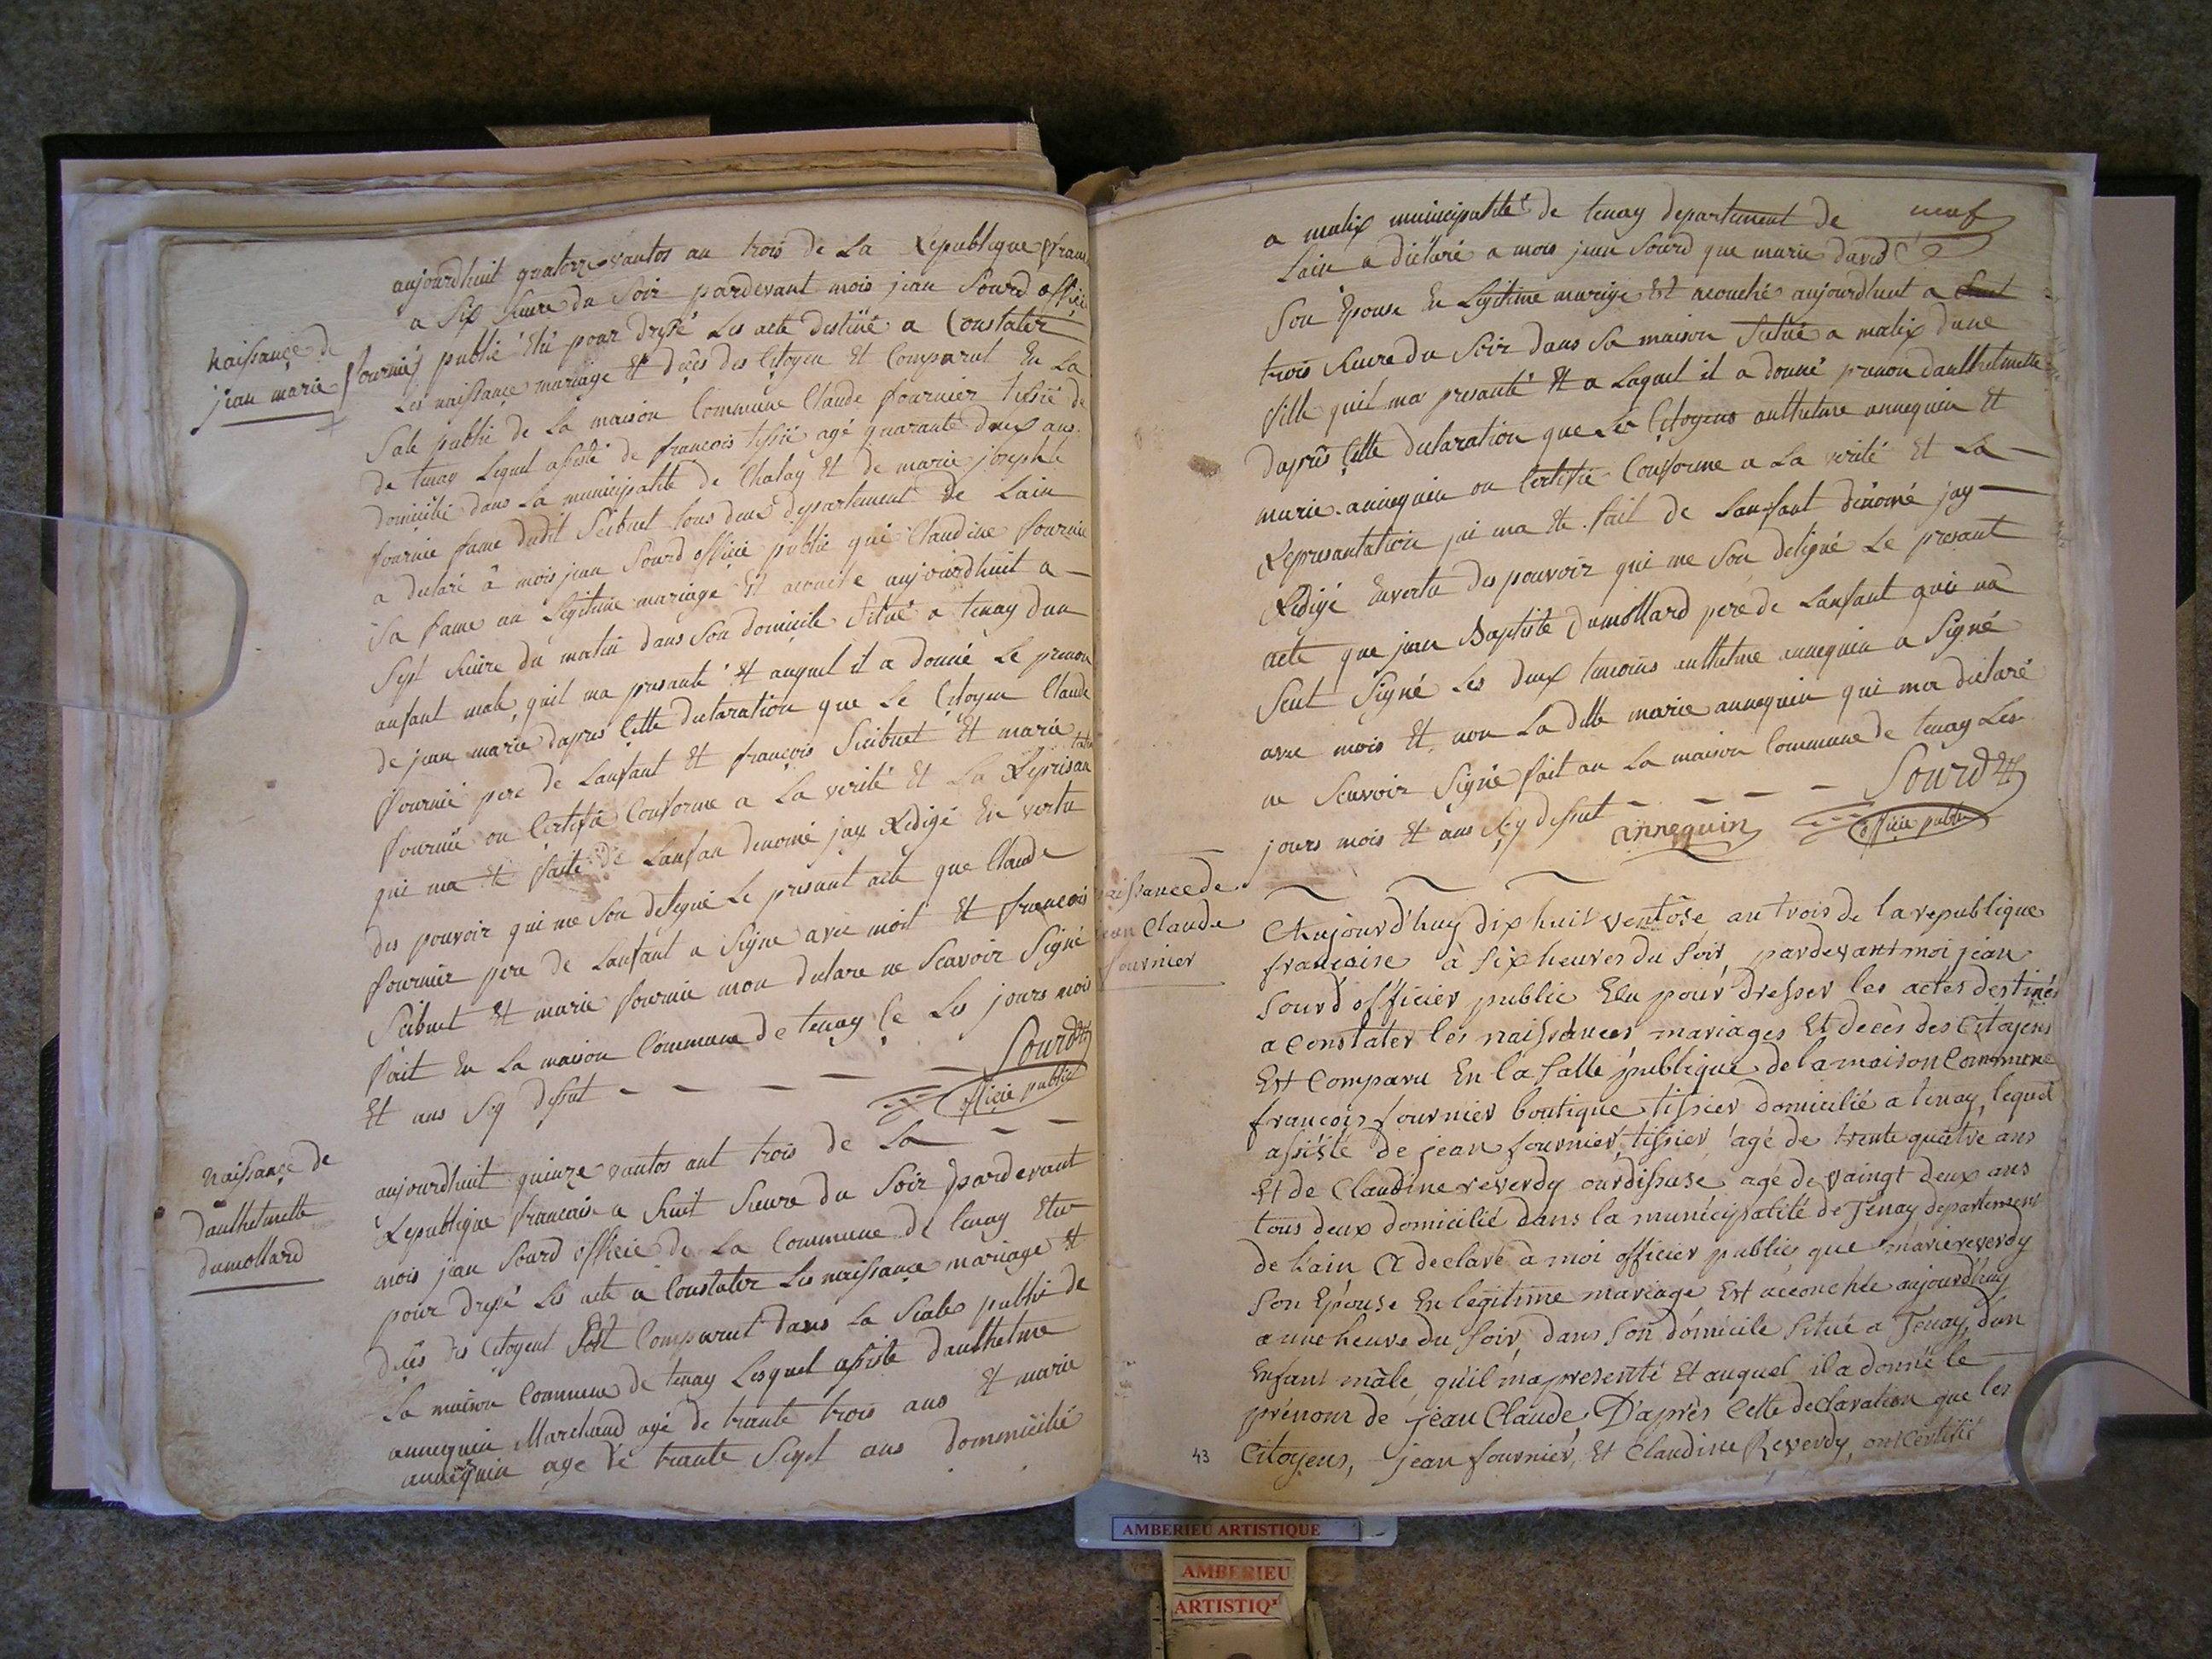 aujourdhuit quatorze vantos an trois de La Republique fran
a Six heure du Soir pardevant mois jean Sourd officié
naissançe de
jean marie fournié
public Elu pour dressé Les acte destiné a Constater
Les naissançe mariage Et déçes des Çitoyen Et Comparut En La
Sale public de La maison Commune Claude fournier tissié de
de tenay Lequel assisté de francois tissié agé quarante deux ans
domicilié dans La municipalité de Chalay Et de marie josephte
fournie fame dudit Scibuet tous deux departement de Lain
a declaré â mois jean Sourd officié public que Claudine fournie
Sa fame an Legitime mariage Et acouché aujourdhuit a
Sept heure du matin dans Son domicile Situé a tenay dun
anfant male quil ma presanté Et auquel il a donné Le prenon
de jean marie dapres Çette declaration que Le Çitoyen Claude
fournié pere de Lanfant Et françois Scibuet Et marie
fournie on Certifié Conforme a La verité Et La Represan
tation
qui ma Eté faite de Lanfan denomé jay Redigé En vertu
des pouvoir qui me Son delegué Le presant acte que Claude
fournier pere de Lanfant a Signé avec moit Et francois
Scibuet Et marie fournie mon declare ne Scavoir Signé
fait En La maison Commune de tenay Çe Les jours mois
Et ans Sy dessut
Sourd
officié public
naissançe de
danthelmette
dumollard
aujourdhuit quinze vantos ant trois de La
Republique francaise a huit heure du Soir pardevant
mois jean Sourd officié de La Commune de tenay Elu
pour dressé Les acte a Constater Les naissançe mariage Et
deçes des Citoyent Est Comparut dans La Scale public de
La maison Commune de tenay Lesquel assisté danthelme
annequin Marchand agé de trante trois ans Et marie
annequin age de trante Sept ans dommicilié
a malix municipalité de tenay departement de
neuf
Lain a déclaré a mois jean Sourd que marie david
Son Epouse En Legitime mariage Et acouché aujourdhuit a
trois heure du Soir dans Sa maison Situé a malix dune
fille quil ma presanté Et a Laquel il a donné prenon danthelmette
daprés Çette declaration que Les Çitoyens anthelme annequin Et
marie annequin on Certifié Conforme a La verité Et La
Represantation qui ma Eté fait de Lanfant dénomé jay
Redigé Envertu des pouvoir qui me Son deligué Le presant
acte que jean Baptiste Dumollard pere de Lanfant qui na
Seut Signé Les deux temoins anthelme annequin a Signé
avec mois Et non La ditte marie annequin qui ma déclaré
ne Scavoir Signé fait an La maison Commune de tenay Les
jours mois Et ans Sy dessut
annequin
Sourd
officié public
naissance de
jean Claude
fournier
Aujourd'huy dix huit ventôse an trois de la republique
francaise à six heures du soir, pardevant moi jean
Sourd officier public Elu pour dresser les actes destinés
a Constater les naissances mariages Et decès des Citoyens
Est Comparu En la salle publique de la maison Commune
francois fournier boutique tissier domicilié a tenay, lequel
assisté de jean fournier tissier agé de trente quatre ans
Et de Claudine reverdy ourdissuse agé de vaingt deux ans
tous deux domicilié dans la municipalité de Tenay departement
de Lain a declaré à moi officier public que marie reverdy
son Epouse En legitime mariage Est accouchée aujourd'huy
a une heure du soir, dans son domicile situé a Tenay, d'un
Enfant mâle qu'il ma presenté Et auquel il a donné le
prénom de jean Claude, D'après Cette declaration que les
Citoyens, jean fournier, Et Claudine Reverdy, ont Certifié
43
AMBERIEU ARTISTIQUE
AMBERIEU
ARTISTIQ